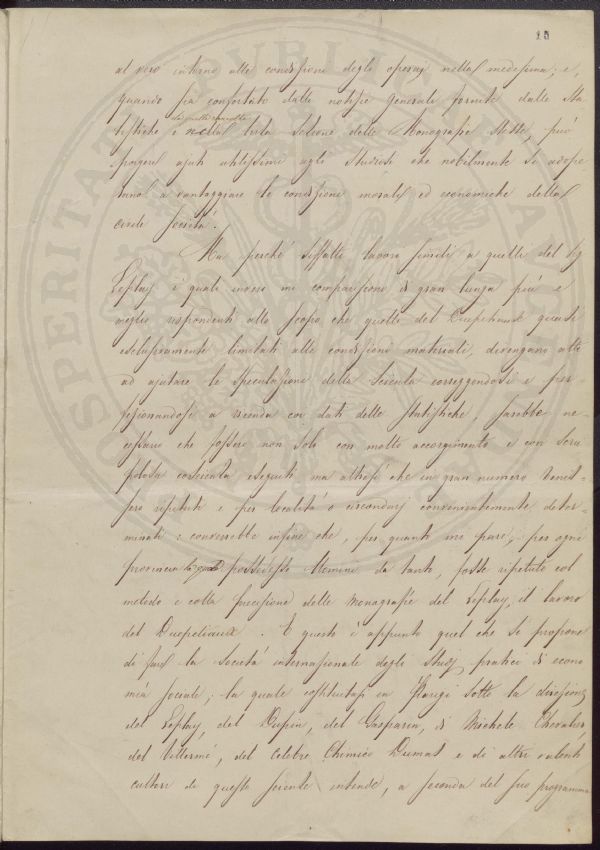 15
al vero intorno alle condizioni degli operaj nella medesima; e,
quando sia confortato dalle notizie generali fornite dalle Sta
tistiche e nella scelta delle Monografie stesse, può
porgere ajuti utilissimi agli studiosi che nobilmente si adope
rano a vantaggiare le condizioni morali ed economiche della
civile società.
Ma perché siffatti lavori simili a quelli del Sig
Leplay i quali invero mi compariscono di gran lunga più e
meglio rispondenti allo scopo che quelli del Ducpetiaux quasi
esclusivamente limitati alle condizioni materiali, divengano atti
ad ajutare le speculazioni della Scienza correggendosi e per
fezionandosi a vicenda coi dati delle statistiche, sarebbe ne
cessario che fossero non solo con molto accorgimento e con scru
polosa coscienza eseguiti ma altresì che in gran numero venis
sero ripetuti e per località o circondarj convenientemente deter
minati: converrebbe infine che, per quanto mi pare, per ogni
provincia possedesse uomini da tanto, fosse ripetuto col
metodo e colla precisione delle monografie del Leplay, il lavoro
del Ducpetiaux. E questo è appunto quel che si propone
di fare la società internazionale degli Studj pratici di econo
mia sociale; la quale costituitasi in Parigi sotto la direzione
del Leplay, del Dupin, del Gasparin, di Michele Chevalier
del Villermé, del celebre Chimico Dumas e di altri valenti
cultori di queste scienze intende, a seconda del suo programma